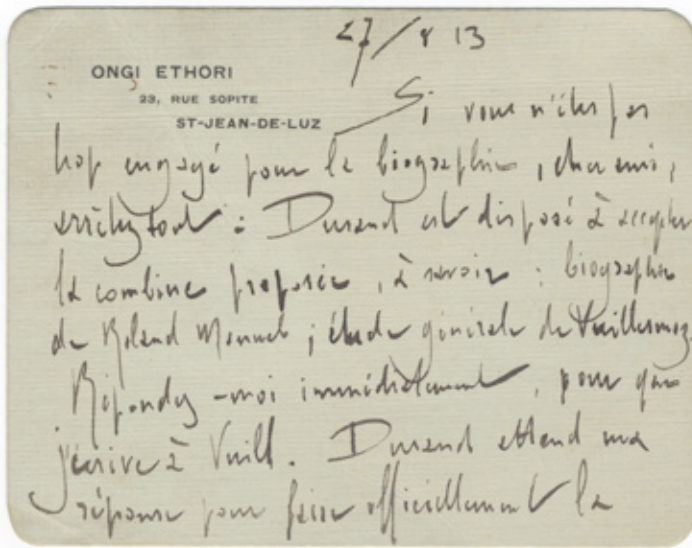 27/8 13
ONGI ETHORI
23, RUE SOPITE
ST-JEAN-DE-LUZ
Si vous n'êtes pas
trop engagé pour la biographie, cher ami,
arrêtez tout : Durand est disposé à accepter
la combine proposée, à savoir : biographie
de Roland Manuel ; étude générale de Vuillermoz.
Répondez-moi immédiatement, pour que
j'écrive à Vuill. Durand attend ma
réponse pour faire officiellement la